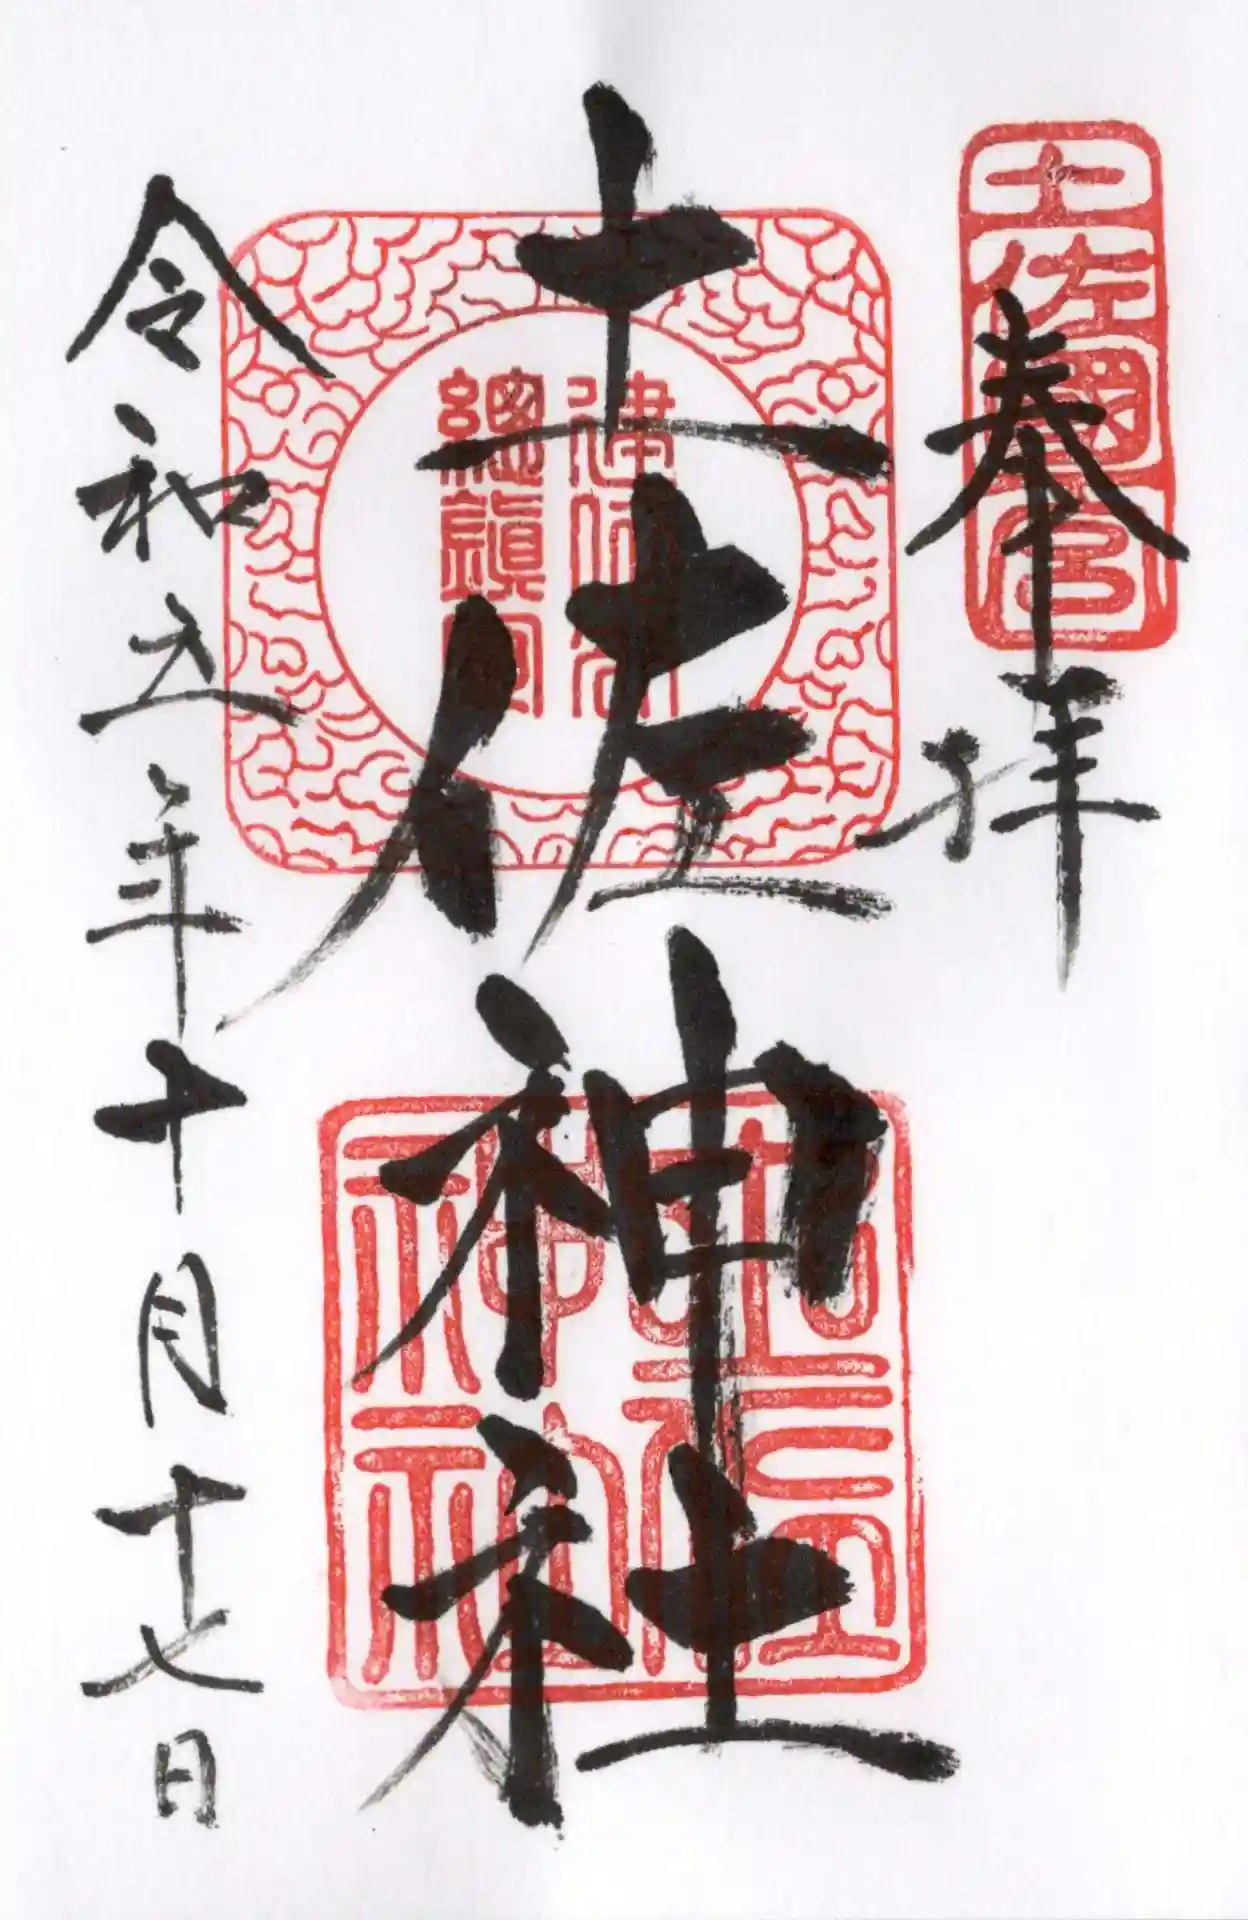 土佐國一宮
奉拝
建依別
總鎮守
土佐神社
土佐
神社
令和五年十月十七日